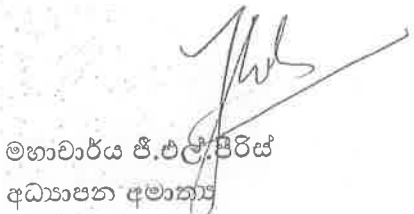 මහාචාර්ය ජී.එල්.පීරිස්
අධ්‍යාපන අමාත්‍ය